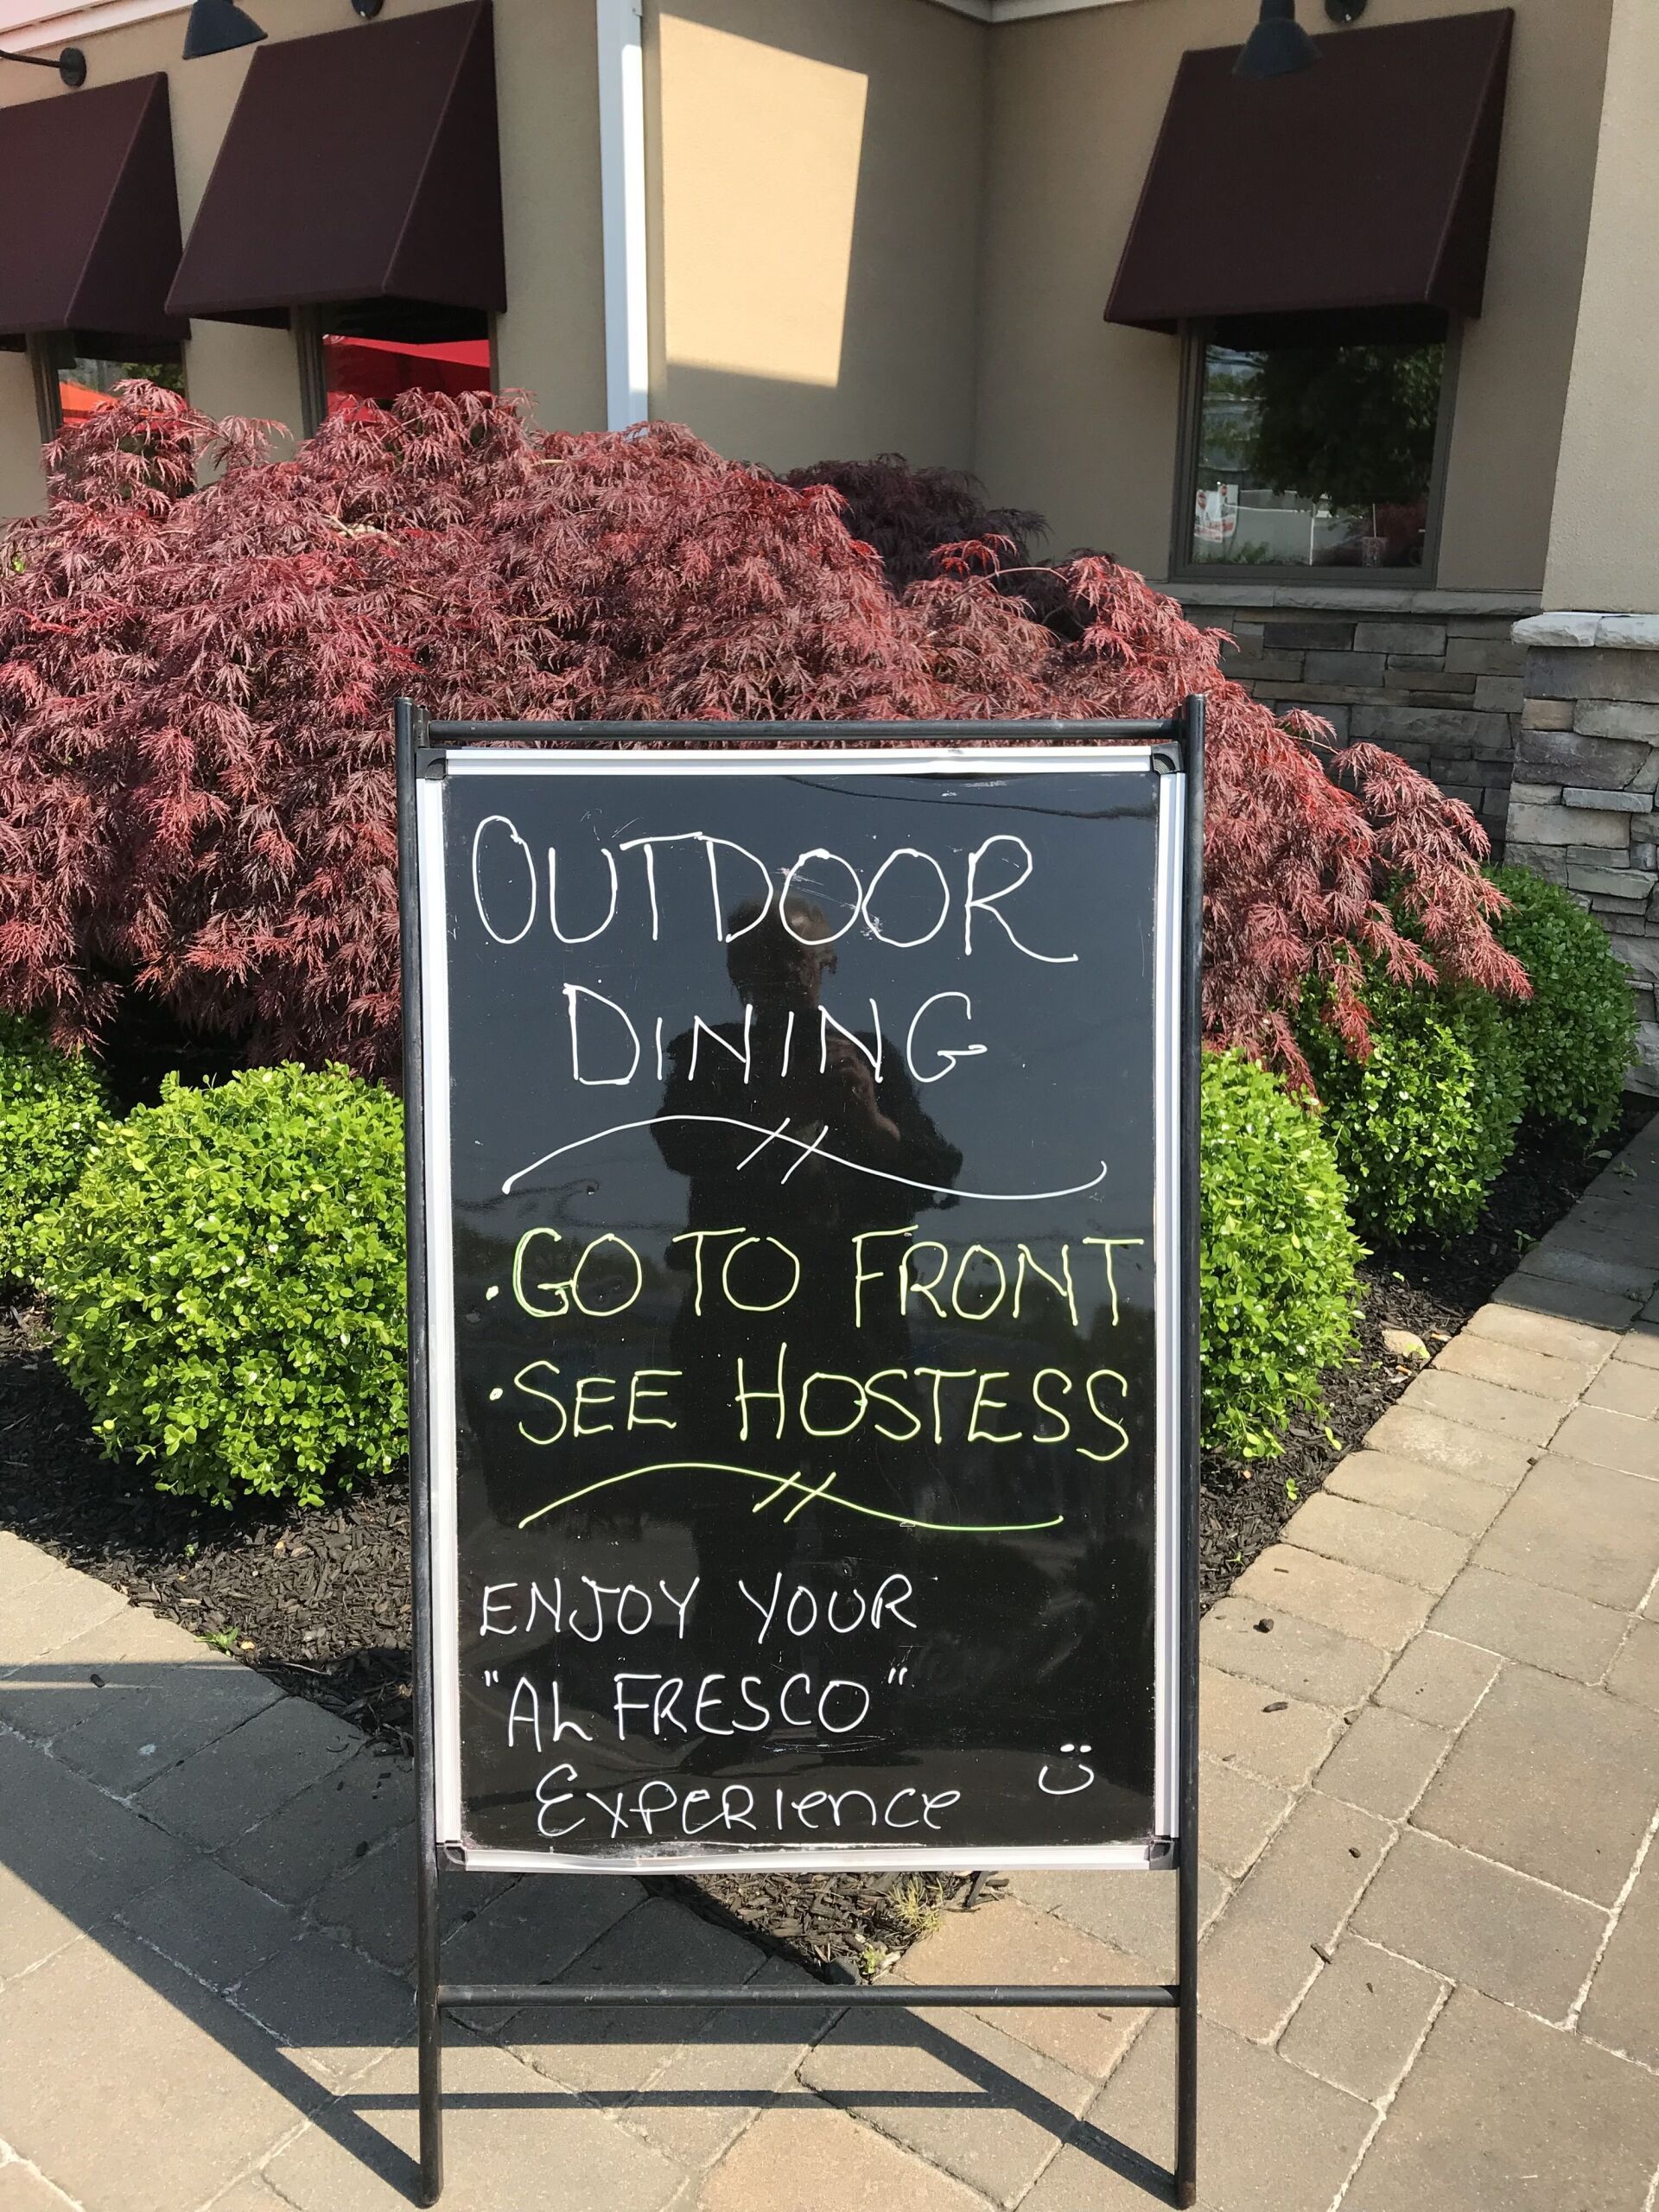 OUTDOOR
DINING
• GO TO FRONT
• SEE HOSTESS
ENJOY YOUR
"AL FRESCO"
EXPERIence